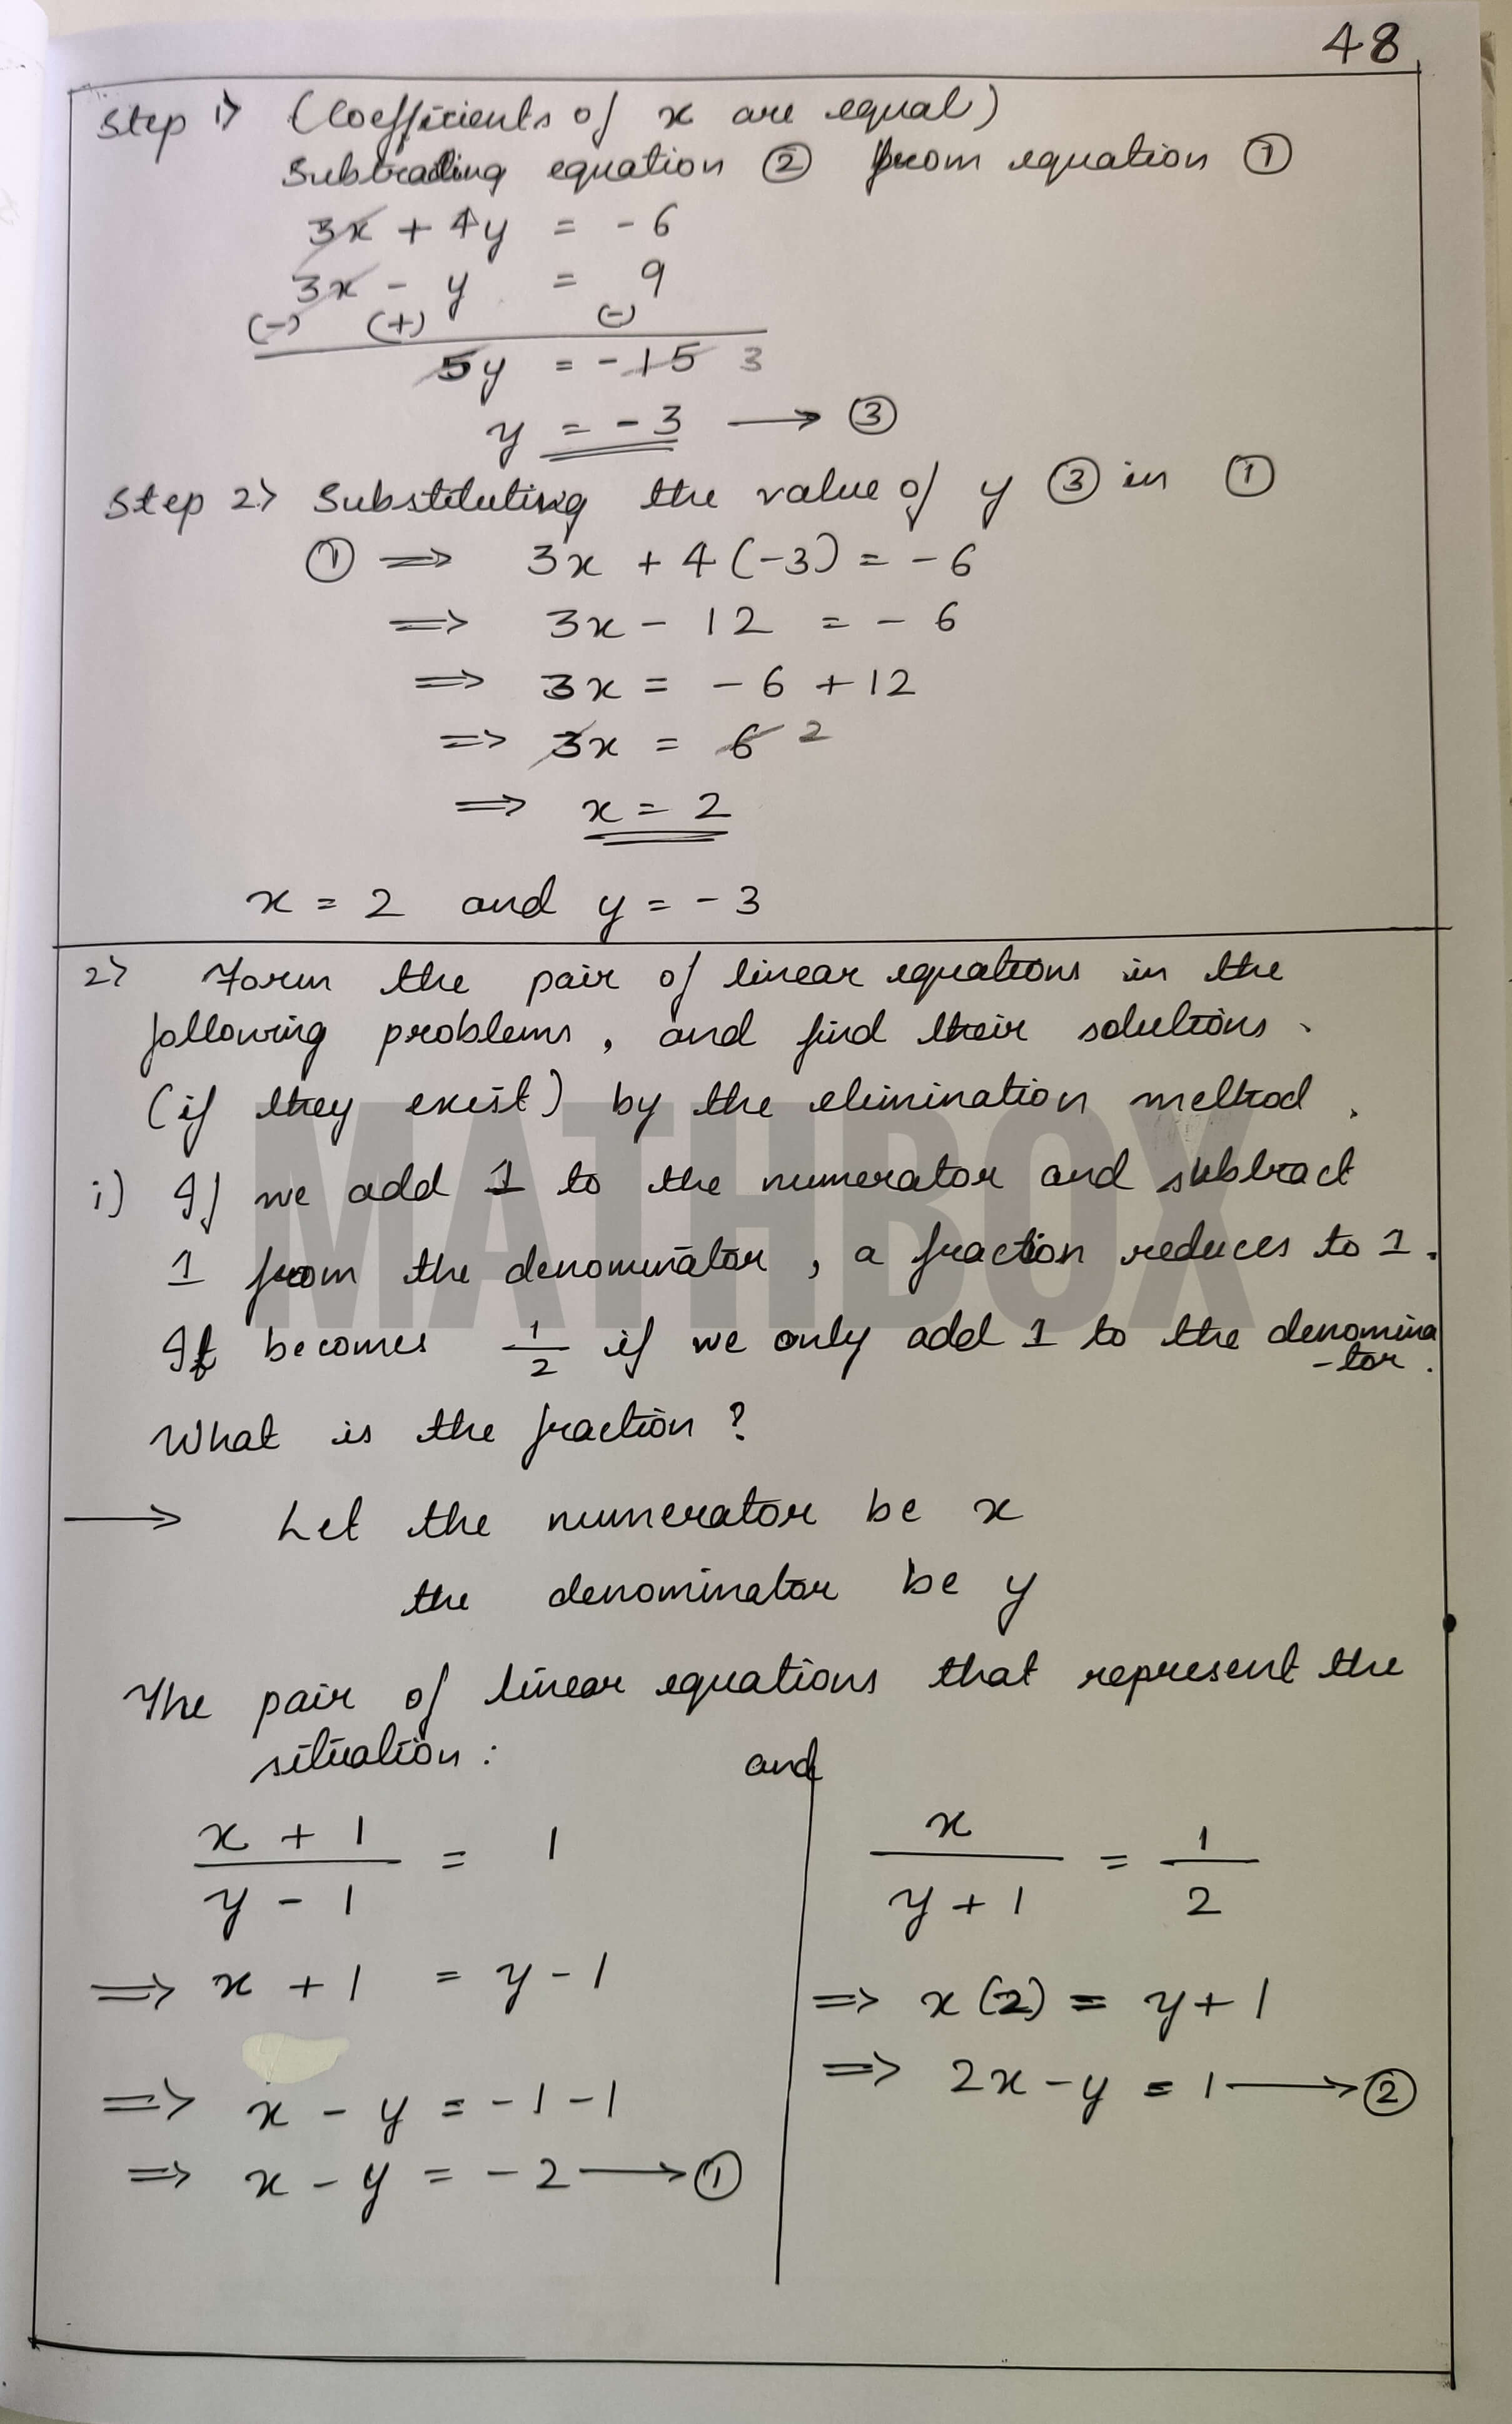 48
Step 1> (Coefficients of x are equal)
Subtracting equation ② from equation ①
3x + 4y = - 6
3x - y = 9
(-) (+) (-)
5y = - 15 3
y = - 3 ⟶ ③
Step 2> Substituting the value of y ③ in ①
① ⟹ 3x + 4 (-3) = - 6
⟹ 3x - 12 = - 6
⟹ 3x = - 6 + 12
⟹ 3x = 6 2
⟹ x = 2
x = 2 and y = - 3
2> Form the pair of linear equations in the
following problems, and find their solutions.
(if they exist) by the elimination method.
i) If we add 1 to the numerator and subtract
1 from the denominator, a fraction reduces to 1.
It becomes 1/2 if we only add 1 to the denomina
-tor.
What is the fraction?
⟶ Let the numerator be x
the denominator be y
The pair of linear equations that represent the
situation: and
(x + 1)/(y - 1) = 1
⟹ x + 1 = y - 1
⟹ x - y = - 1 - 1
⟹ x - y = - 2 ⟶ ①
x/(y + 1) = 1/2
⟹ x (2) = y + 1
⟹ 2x - y = 1 ⟶ ②
MATHBOX